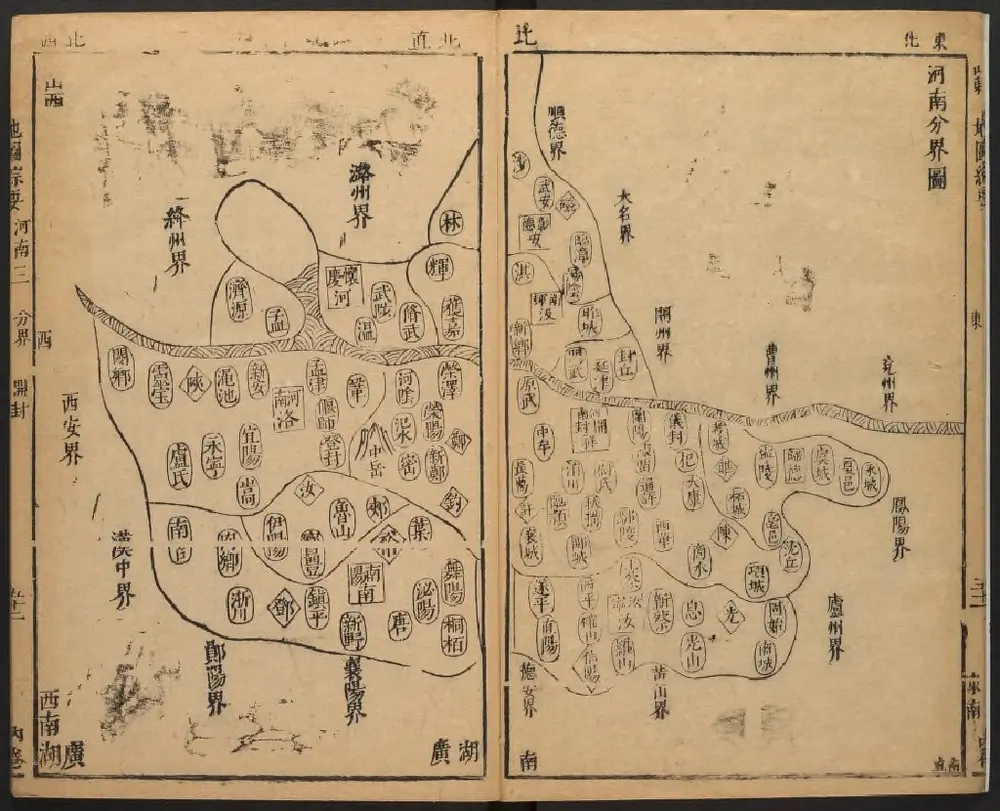 河南分界圖
東
北
北
北直
山西
順德界
大名界
開州界
曹州界
兗州界
鳳陽界
廬州界
黃山界
德安界
東
東南
南
武安
磁
彰德
安
臨漳
湯陰
淇
衛輝
汲
新鄉
胙城
延津
封丘
原武
陽武
開封
祥
中牟
蘭陽
儀封
考城
杞
睢
寧陵
歸德
虞城
夏邑
永城
通許
太康
柘城
鹿邑
陳
沈丘
項城
商水
西華
鄢陵
扶溝
洧川
尉氏
長葛
許
襄城
臨潁
郾城
遂平
西平
上蔡
汝
新蔡
息
光
固始
商城
光山
羅山
信陽
確山
真陽
潞州界
絳州界
西安界
漢中界
鄖陽界
襄陽界
湖廣
湖廣
西南
西
林
輝
獲嘉
懷慶
河
武陟
修武
溫
濟源
孟
閿鄉
靈宝
陝
澠池
新安
孟津
河南
洛
偃師
鞏
河陰
滎澤
滎陽
汜水
中岳
登封
密
新鄭
鄭
鈞
盧氏
永寧
宜陽
嵩
汝
魯山
郟
葉
裕
伊陽
南召
內鄉
淅川
鄧
鎮平
南陽
南
新野
唐
泌陽
舞陽
桐栢
地圖綜要
河南三
分界
開封
內卷